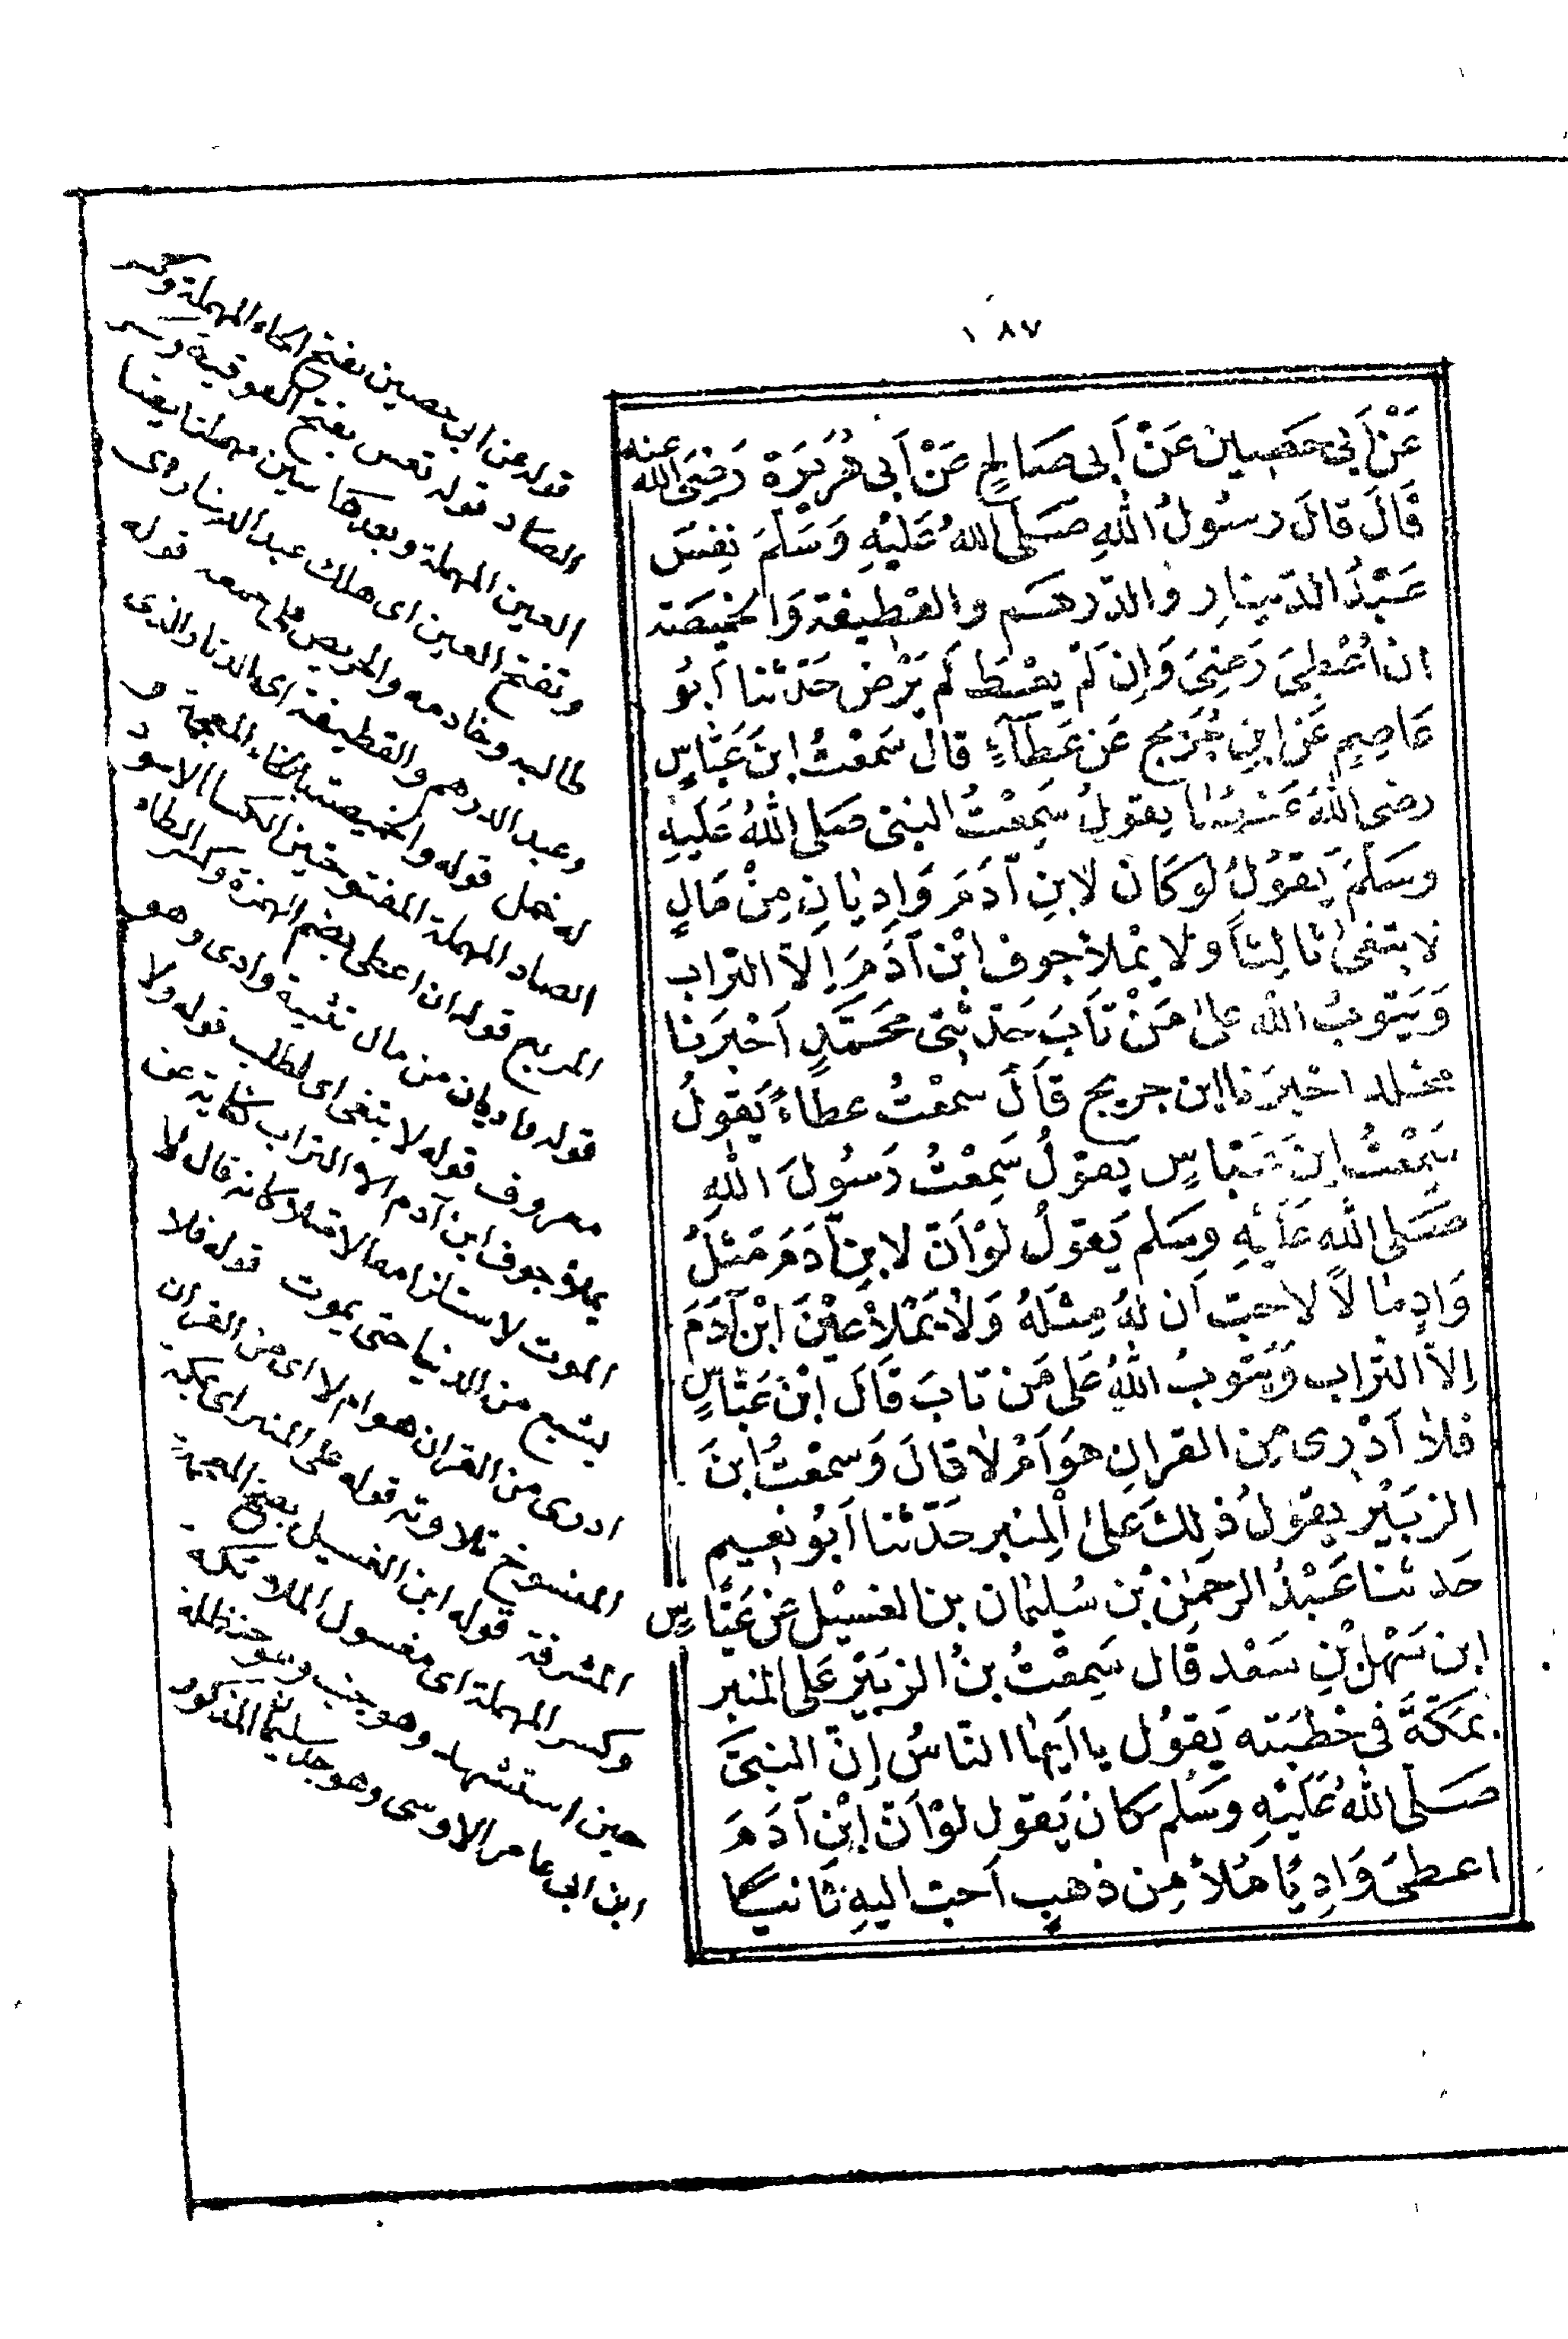 ١٨٧
عَنْ أَبِي حَصِينٍ عَنْ أَبِى صَالِحٍ عَنْ أَبِى هُرَيْرَةَ رَضِيَ الله عنه
قَالَ قَالَ رَسُولُ اللهِ صَلَّى اللهُ عَلَيْهِ وَسَلَّمَ تِعِسَ
عَبْدُ الدِّينَارِ وَالدِّرْهَمِ وَالقَطِيفَةِ وَالخَمِيصَةِ
ان اُعْطِىَ رَضِىَ وَاِن لَمْ يعْطَ لَم يَرْضَ حَدّثنا اَبُو
عَاصِمٍ عَن ابنِ جُرَيجٍ عَن عَطَآءٍ قال سَمعْتُ ابنَ عَبَّاسٍ
رضى اللهُ عَنهُمَا يقولُ سَمِعْتُ النبىَّ صَلى اللهُ عَلَيهِ
وسَلَّمَ يَقُولُ لوكَانَ لابنِ اٰدَمَ وَادِيَانِ مِنْ مَالٍ
لا بتغىٰ ثالِثاً ولا يَمْلأ جوف ابْن آدَمَ اِلاّ التراب
وَيَتوبُ الله علىٰ مَنْ تَابَ حَدّثَنِى مُحَمَّدٌ اَخْبرَنا
مخلد اخبرَنا ابن جريج قَالَ سَمعْتُ عطَاءً يَقولُ
سَمِعْتُ ابنَ عَبَّاسٍ يقولُ سَمِعْتُ رَسُولَ اللهِ
صَلى الله عَلَيْهِ وسَلم يَقولُ لوْاَنّ لابنِ آدَمَ مَثلَ
وَادٍ مَا لاً لاحبّ اَن لهُ مِثلَهُ وَلا يَمْلأ عيْنَ ابْنِ آدَمَ
اِلاّ التراب وَيَتوبُ اللهُ عَلى مَن تابَ قَالَ ابْنُ عَبَّاسٍ
فلا اَدْرِى مِن القرانِ هوَ اَمْ لا قالَ وَسمعْتُ ابنَ
الزبَيْر يقولُ ذٰلِكَ علىٰ المِنبر حَدّثنا اَبُو نعيم
حَدثنا عَبْدُ الرحمٰنِ بْن سُليمٰان بن الغسيْل عَن عَبَّاسِ
ابن سَهْلِ بْنِ سَعْد قال سَمِعْتُ بنُ الزبَيْر عَلى المنبر
بمَكةَ فى خطبَته يَقوُل يا اَيهَا الناسُ اِنّ النبىَّ
صَلى اللهُ عَلَيْهِ وسَلم كان يَقول لوْاَنّ ابْنَ آدَمَ
اعطىَ وَادِيًا مَلأ مِن ذهبٍ اَحبّ اليهِ ثَانيًا
قوله عن ابى حصين بفتح الحاء المهملة وكسر
الصاد قوله تعس بفتح الفوقية وكسر
العين المهملة وبعدها سين مهملة ايضا
وتفتح العين اى هلك عبد الدينار اى
طالبه وخادمه والحريص على جمعه قوله
وعبد الدرهم والقطيفة اى الدثار الذى
له خمل قوله والخميصة بالخاء المعجمة و
الصاد المهملة المفتوحتين الكساء الاسود
المربع قوله ان اعطى بضم الهمزة وكسر الطاء
قوله واديان من مال تثنية وادى وهو
معروف قوله لا بتغى اى لطلب قوله ولا
يملأ جوف ابن آدم الا التراب كناية عن
الموت لاستلزامه الامتلا كانه قال لا
يشبع من الدنيا حتى يموت قوله فلا
ادرى من القران هو ام لا اى من القران
المنسوخ تلاوته قوله على المنبر اى بمكة
المشرفة قوله ابن الغسيل بفتح المعجمة
وكسر المهملة اى مغسول الملائكة
حين استشهد وهو جنب وهو حنظلة
ابن ابى عامر الاوسى وهو جد سليمان المذكور